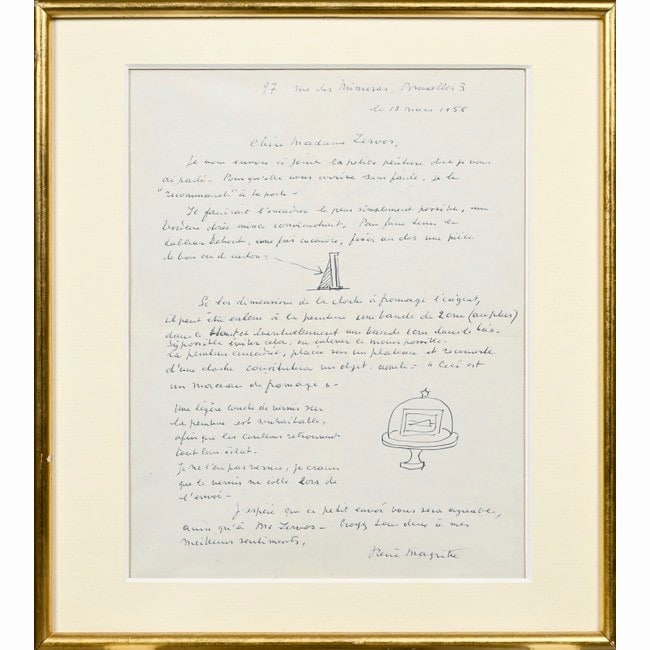 97 rue des Mimosas, Bruxelles 3
le 13 mars 1958
Chère Madame Zervos,
Je vous envoie ci joint la petite peinture dont je vous
ai parlé. Pour qu'elle vous arrive sans faute, je la
"recommande" à la poste -
Il faudrait l'encadrer le plus simplement possible, une
bordure très mince conviendrait. Pour faire tenir le
tableau debout, une fois encadré, fixer au dos une pièce
de bois ou de carton :
Si les dimensions de la cloche à fromage l'exigent,
il peut être enlevé à la peinture une bande de 2cm (au plus)
dans le haut et éventuellement une bande 1cm dans le bas.
Si possible éviter cela, ou enlever le moins possible.
La peinture encadrée, placée sur un plateau et recouverte
d'une cloche constituera un objet intitulé : « Ceci est
un morceau de fromage ».
Une légère couche de vernis sur
la peinture est souhaitable,
afin que les couleurs retrouvent
tout leur éclat.
Je ne l'ai pas vernie, je crains
que le vernis ne colle lors de
l'envoi -
J'espère que ce petit envoi vous sera agréable,
ainsi qu'à Mr Zervos - Croyez tous deux à mes
meilleurs sentiments,
René Magritte